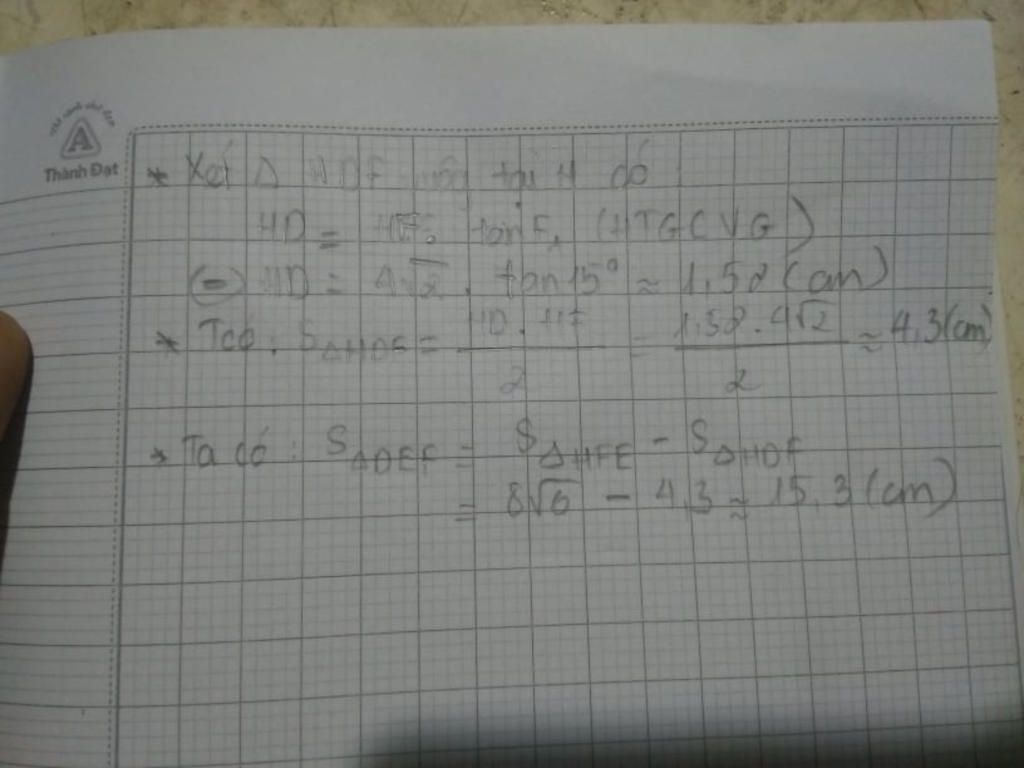 A
Thành Đạt
* Xét Δ HDF vuông tại H có
HD = HF. tan F1 (HTGCVG)
(=) HD = 4√2 . tan 15° ≈ 1.52 (cm)
* Tcó : SΔHDF = HD . HF / 2 = 1.52 . 4√2 / 2 ≈ 4,3 (cm)
* Ta có : SΔDEF = SΔHFE - SΔHDF
= 8√6 - 4,3 ≈ 15,3 (cm)